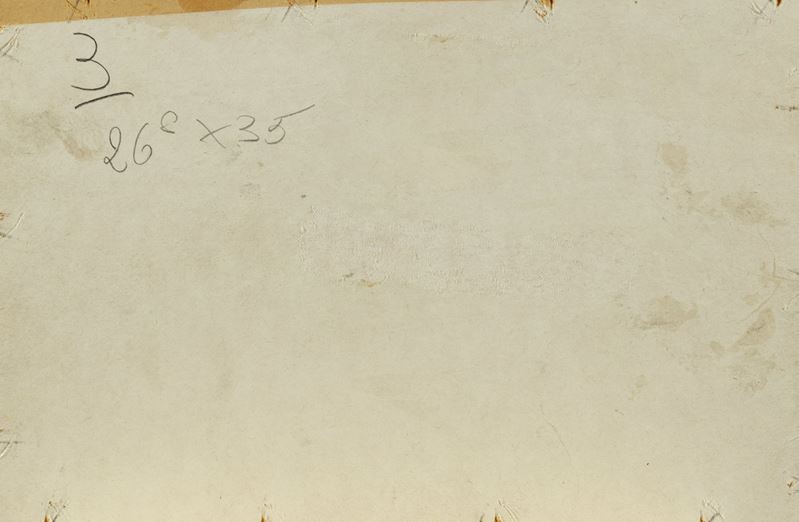 3
26c x 35